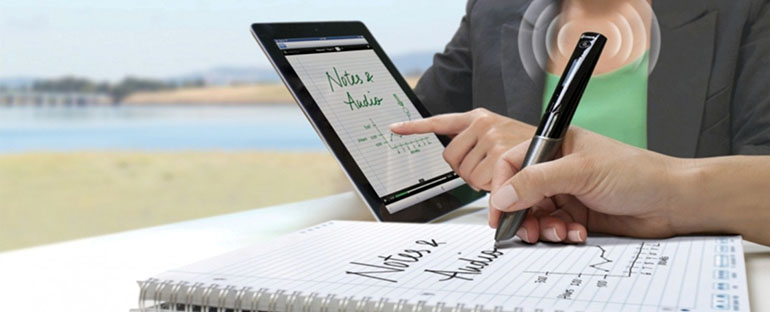 Notes &
Audio
Notes &
Audio